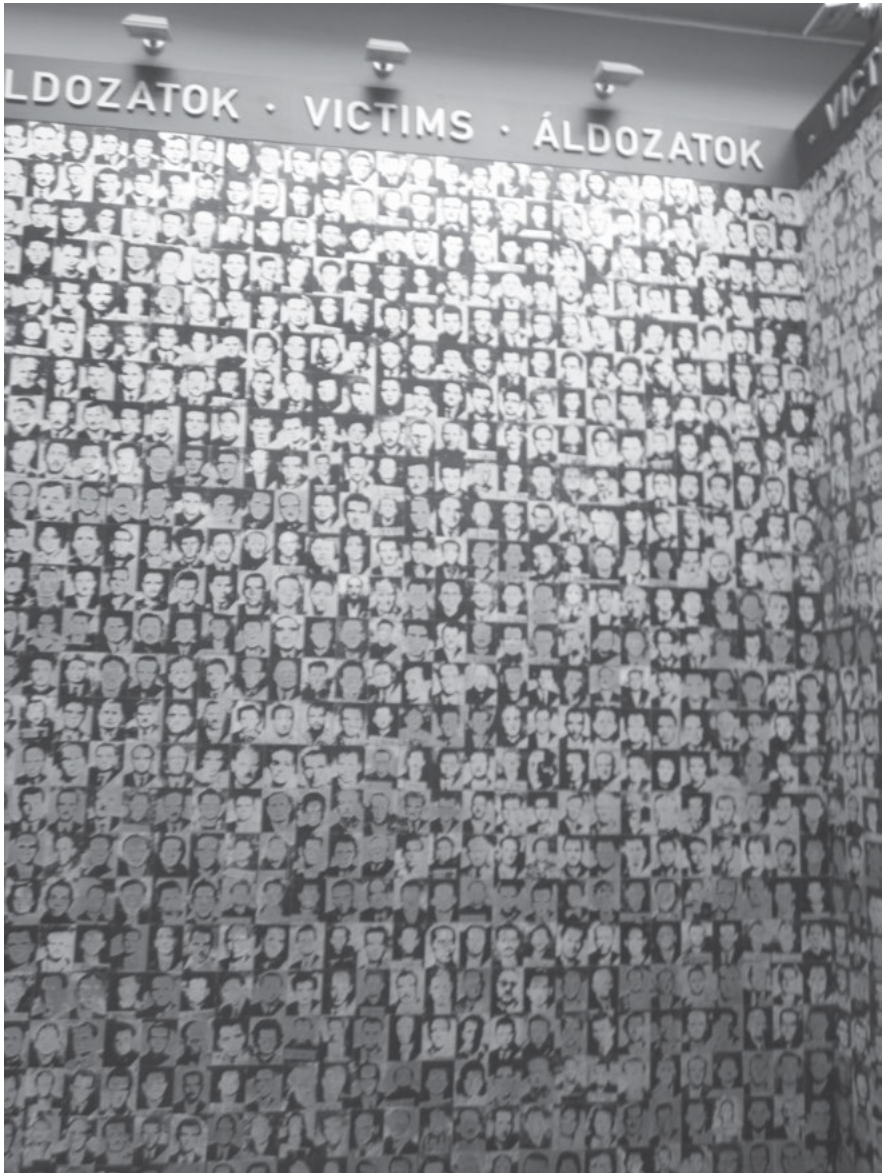 LDOZATOK · VICTIMS · ÁLDOZATOK
· VICT